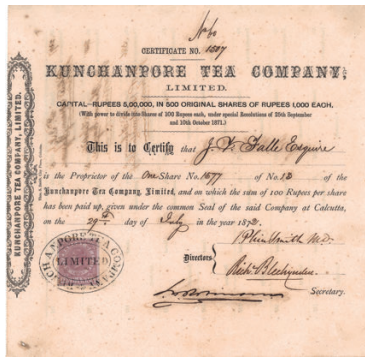 No
CERTIFICATE No. 1507
KUNCHANPORE TEA COMPANY,
LIMITED.
CAPITAL—RUPEES 5,00,000, IN 500 ORIGINAL SHARES OF RUPEES 1,000 EACH.
(With power to divide into Shares of 100 Rupees each, under special Resolutions of 20th September
and 10th October 1871.)
This is to Certify that J. Esquire
is the Proprietor of the One Share No. 1577 of No. of the
Kunchanpore Tea Company, Limited, and on which the sum of 100 Rupees per share
has been paid up, given under the common Seal of the said Company at Calcutta,
on the 29th day of July in the year 1872.
Directors
Richd Blechynden
Secretary.
KUNCHANPORE TEA COMPANY, LIMITED.
KUNCHANPORE TEA COMPANY
LIMITED